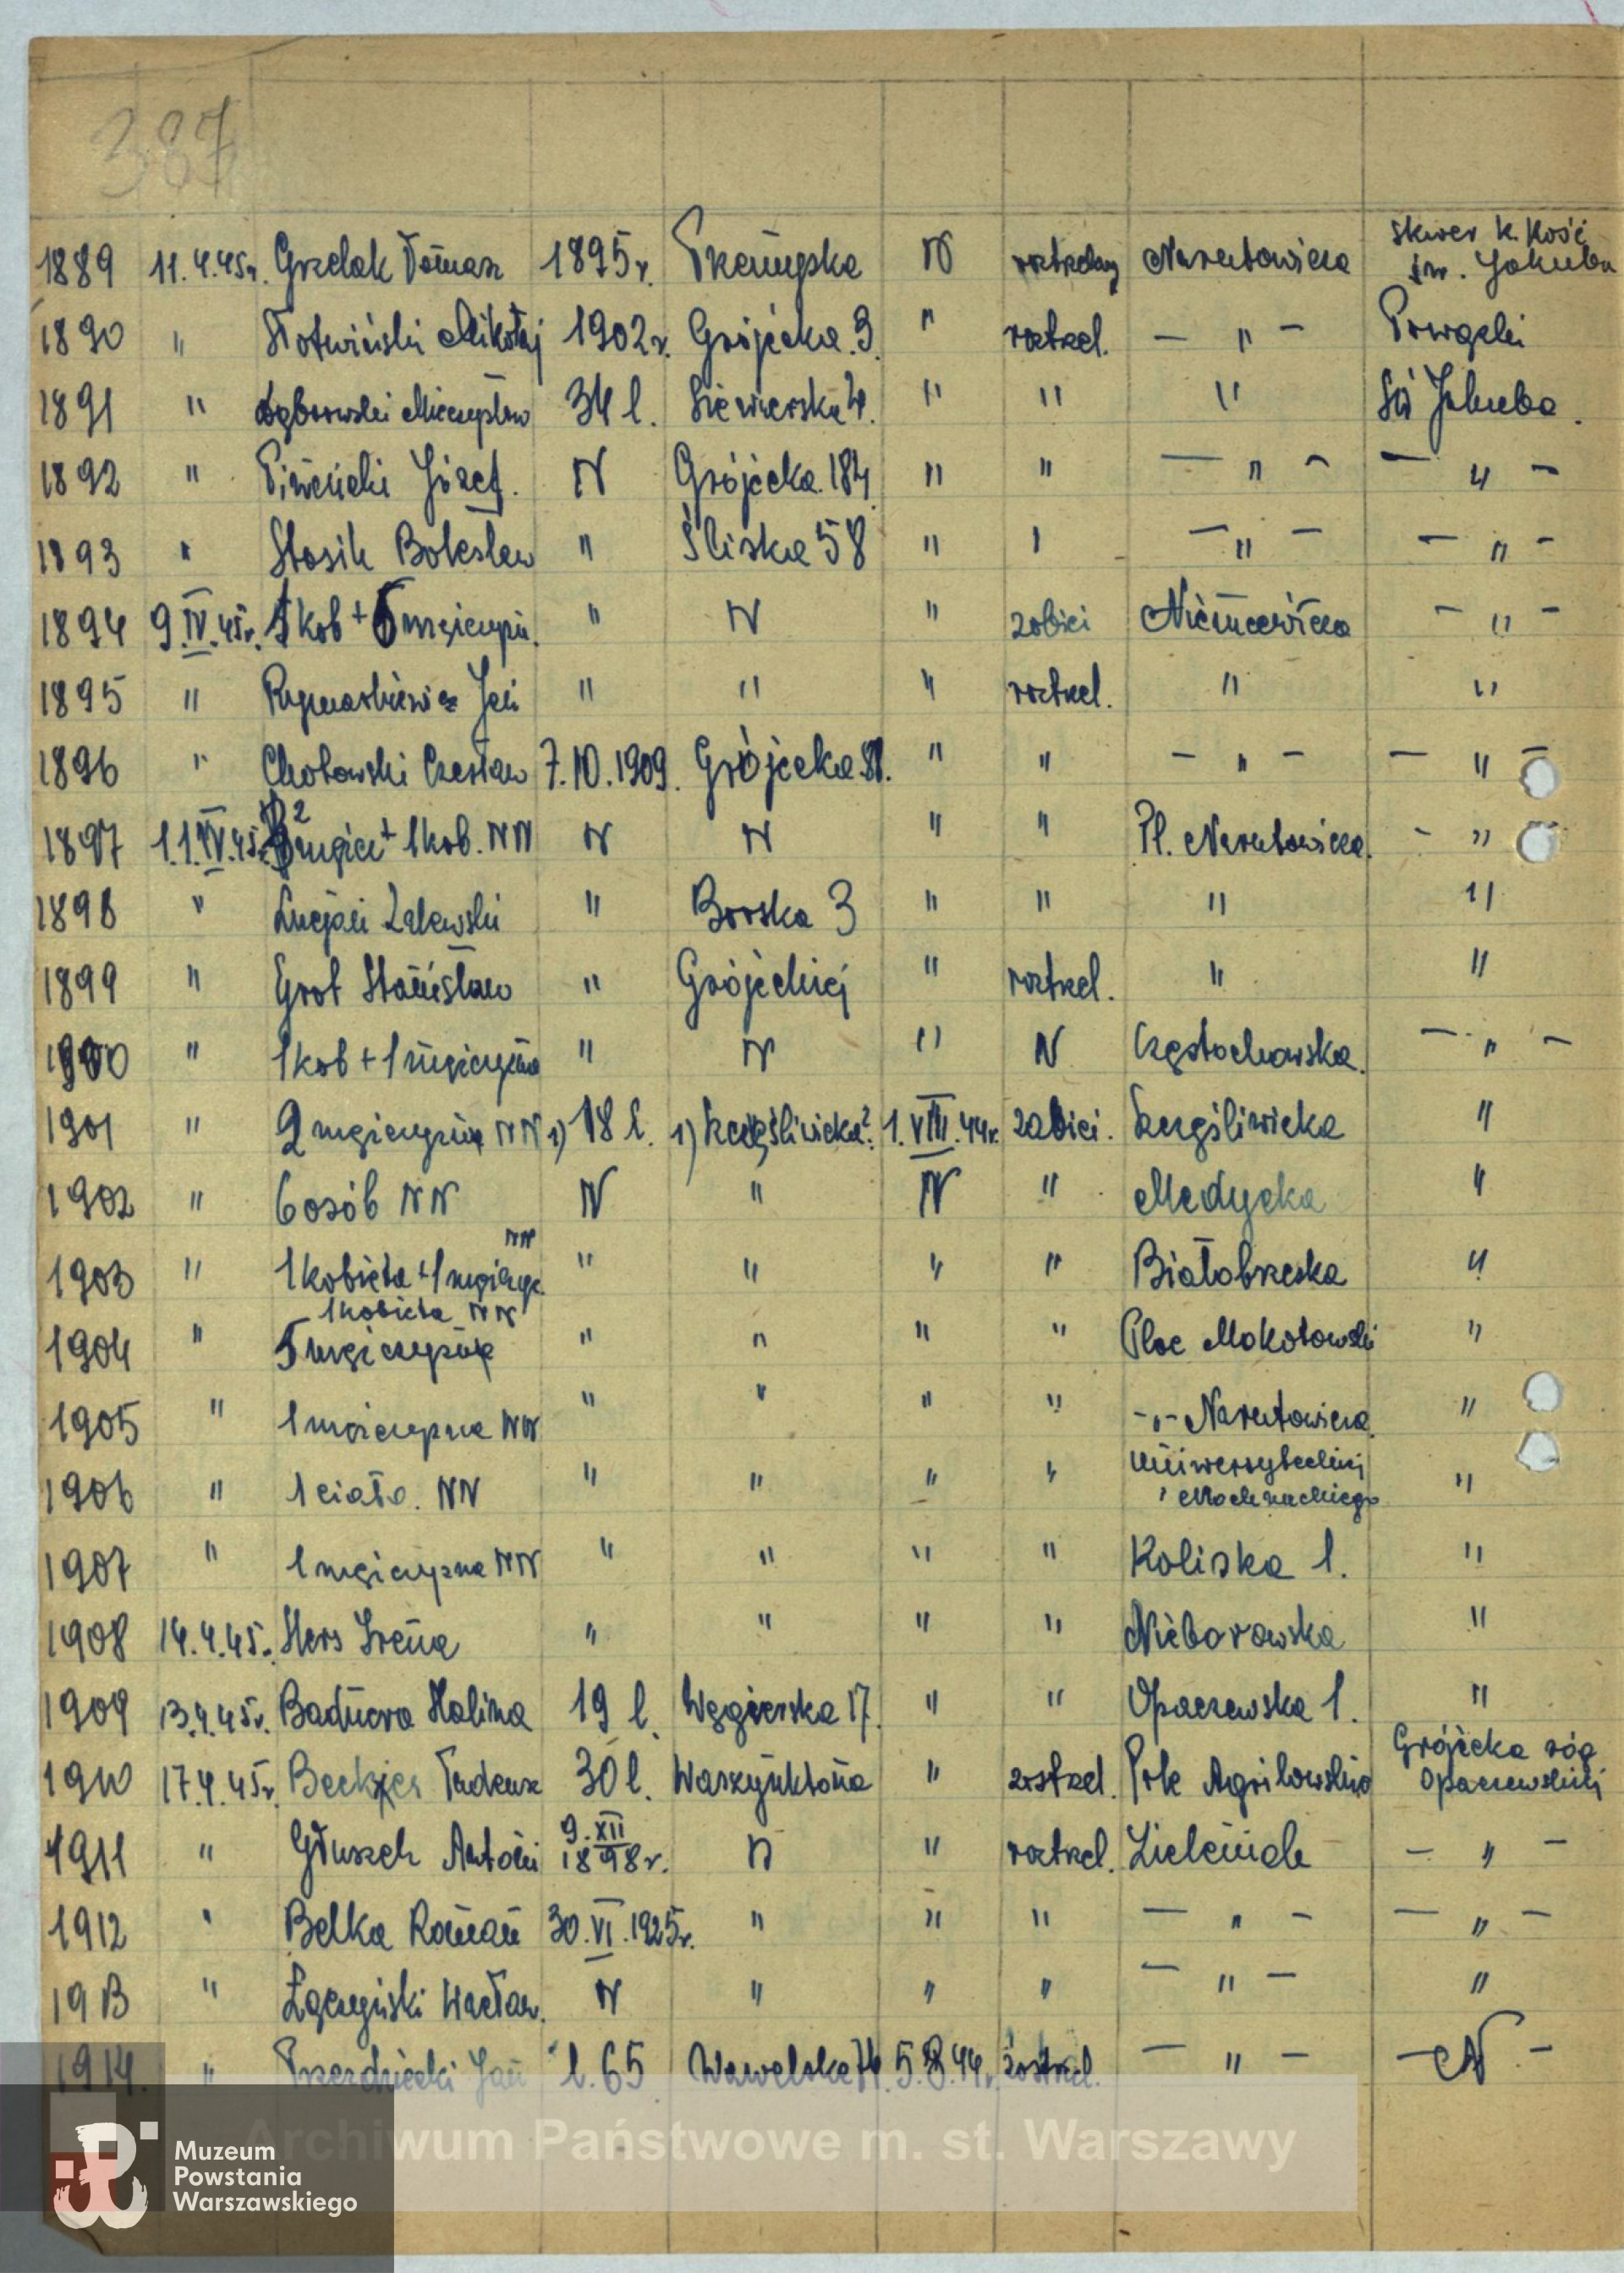 387
1889 11.4.45r. Grzelak Tomasz 1895 r. Przemyska N roztrzelany Narutowicza Skwer k. Kość. św. Jakuba
1890 " Słotwiński Mikołaj 1902 r. Grójecka 3. " roztrzel. — " — Powązki
1891 " Dąbrowski Mieczysław 34 l. Siewierska 4. " " " Św Jakuba.
1892 " Józef. N Grójecka 184 " " — " — — " —
1893 " Stasik Bolesław " Śliska 58 " " — " — — " —
1894 9.IV.45r. 1 kob + 6 mężczyzn. " N " zabici Niemcewicza — " —
1895 " Rymaszkiewicz Jan " " " roztrzel. " "
1896 " Chotowski Czesław 7.10.1909. Grójecka 81. " " — " — — " —
1897 11.IV.45r. 2 + 1 kob. NN N N " " Pl. Narutowicza. — "
1898 " Lucjan Zalewski " Borska 3 " " " "
1899 " Grot Stanisław " Grójeckiej " roztrzel. " "
1900 " 1 kob + 1 mężczyzna " N " N Częstochowska. — " —
1901 " 2 mężczyzn NN 1) 18 l. 1) Szczęśliwicka 2. 1.VIII.44r. zabici. Szczęśliwicka "
1902 " 6 osób NN N " N " Medycka "
1903 " 1 kobieta + 1 mężczyz. NN " " " " Białobrzeska "
1904 " 1 kobieta NN 5 mężczyzn " " " " Plac Mokotowski "
1905 " 1 mężczyzna NN " " " " -"- Narutowicza. "
1906 " 1 ciało. NN " " " " Uniwersyteckiej i Mochnackiego "
1907 " 1 mężczyzna NN " " " " Kaliska 1. "
1908 14.4.45r. Hers Irena " " " " Nieborowska "
1909 13.4.45r. Halina 19 l. Węgierska 17. " " Opaczewska 1. "
1910 17.4.45r. Becker Tadeusz 30 l. Waszynktona " zastrzel. Grójecka róg Opaczewskiej
1911 " Głuszek Antoni 9.XII 1898 r. N " roztrzel. Zieleniak — " —
1912 " Belka Roman 30.VI.1925r. " " " — " — — " —
1913 " Łączyński Wacław. N " " " — " — "
1914. " Przezdziecki Jan l. 65 Wawelska 74 5.8.44r. zastrzel. — " — — N —
Archiwum Państwowe m. st. Warszawy
Muzeum
Powstania
Warszawskiego